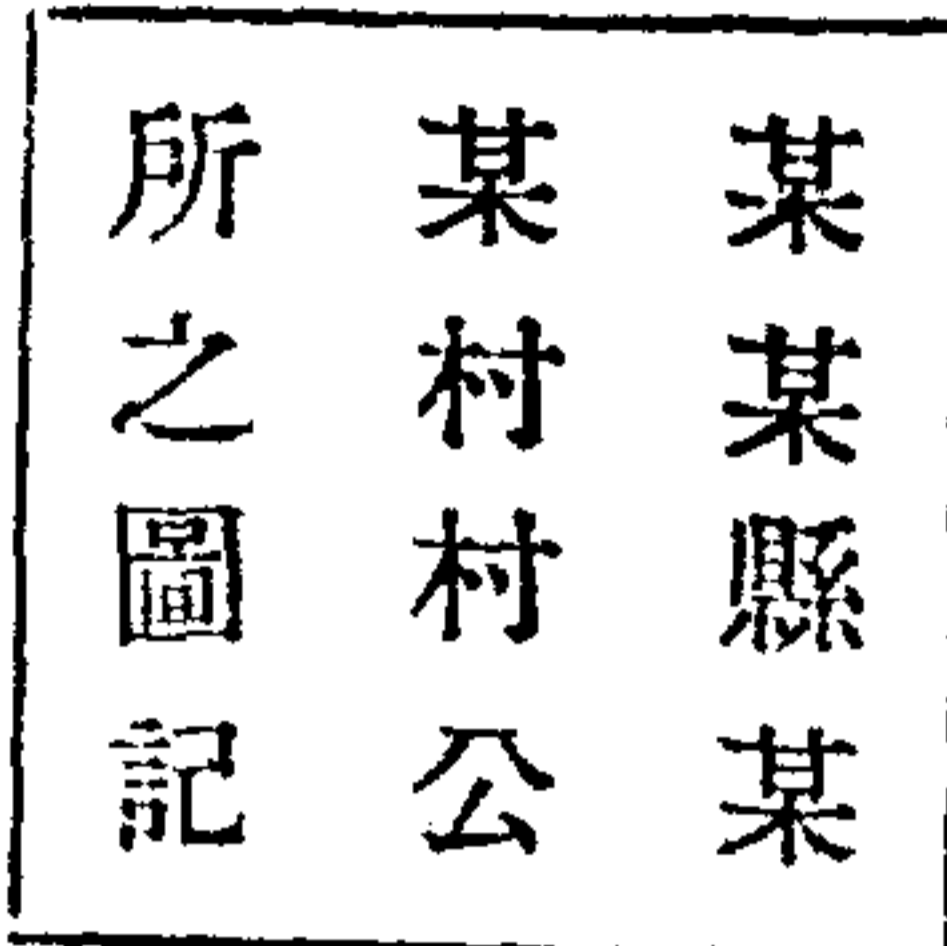 某某縣某
某村村公
所之圖記